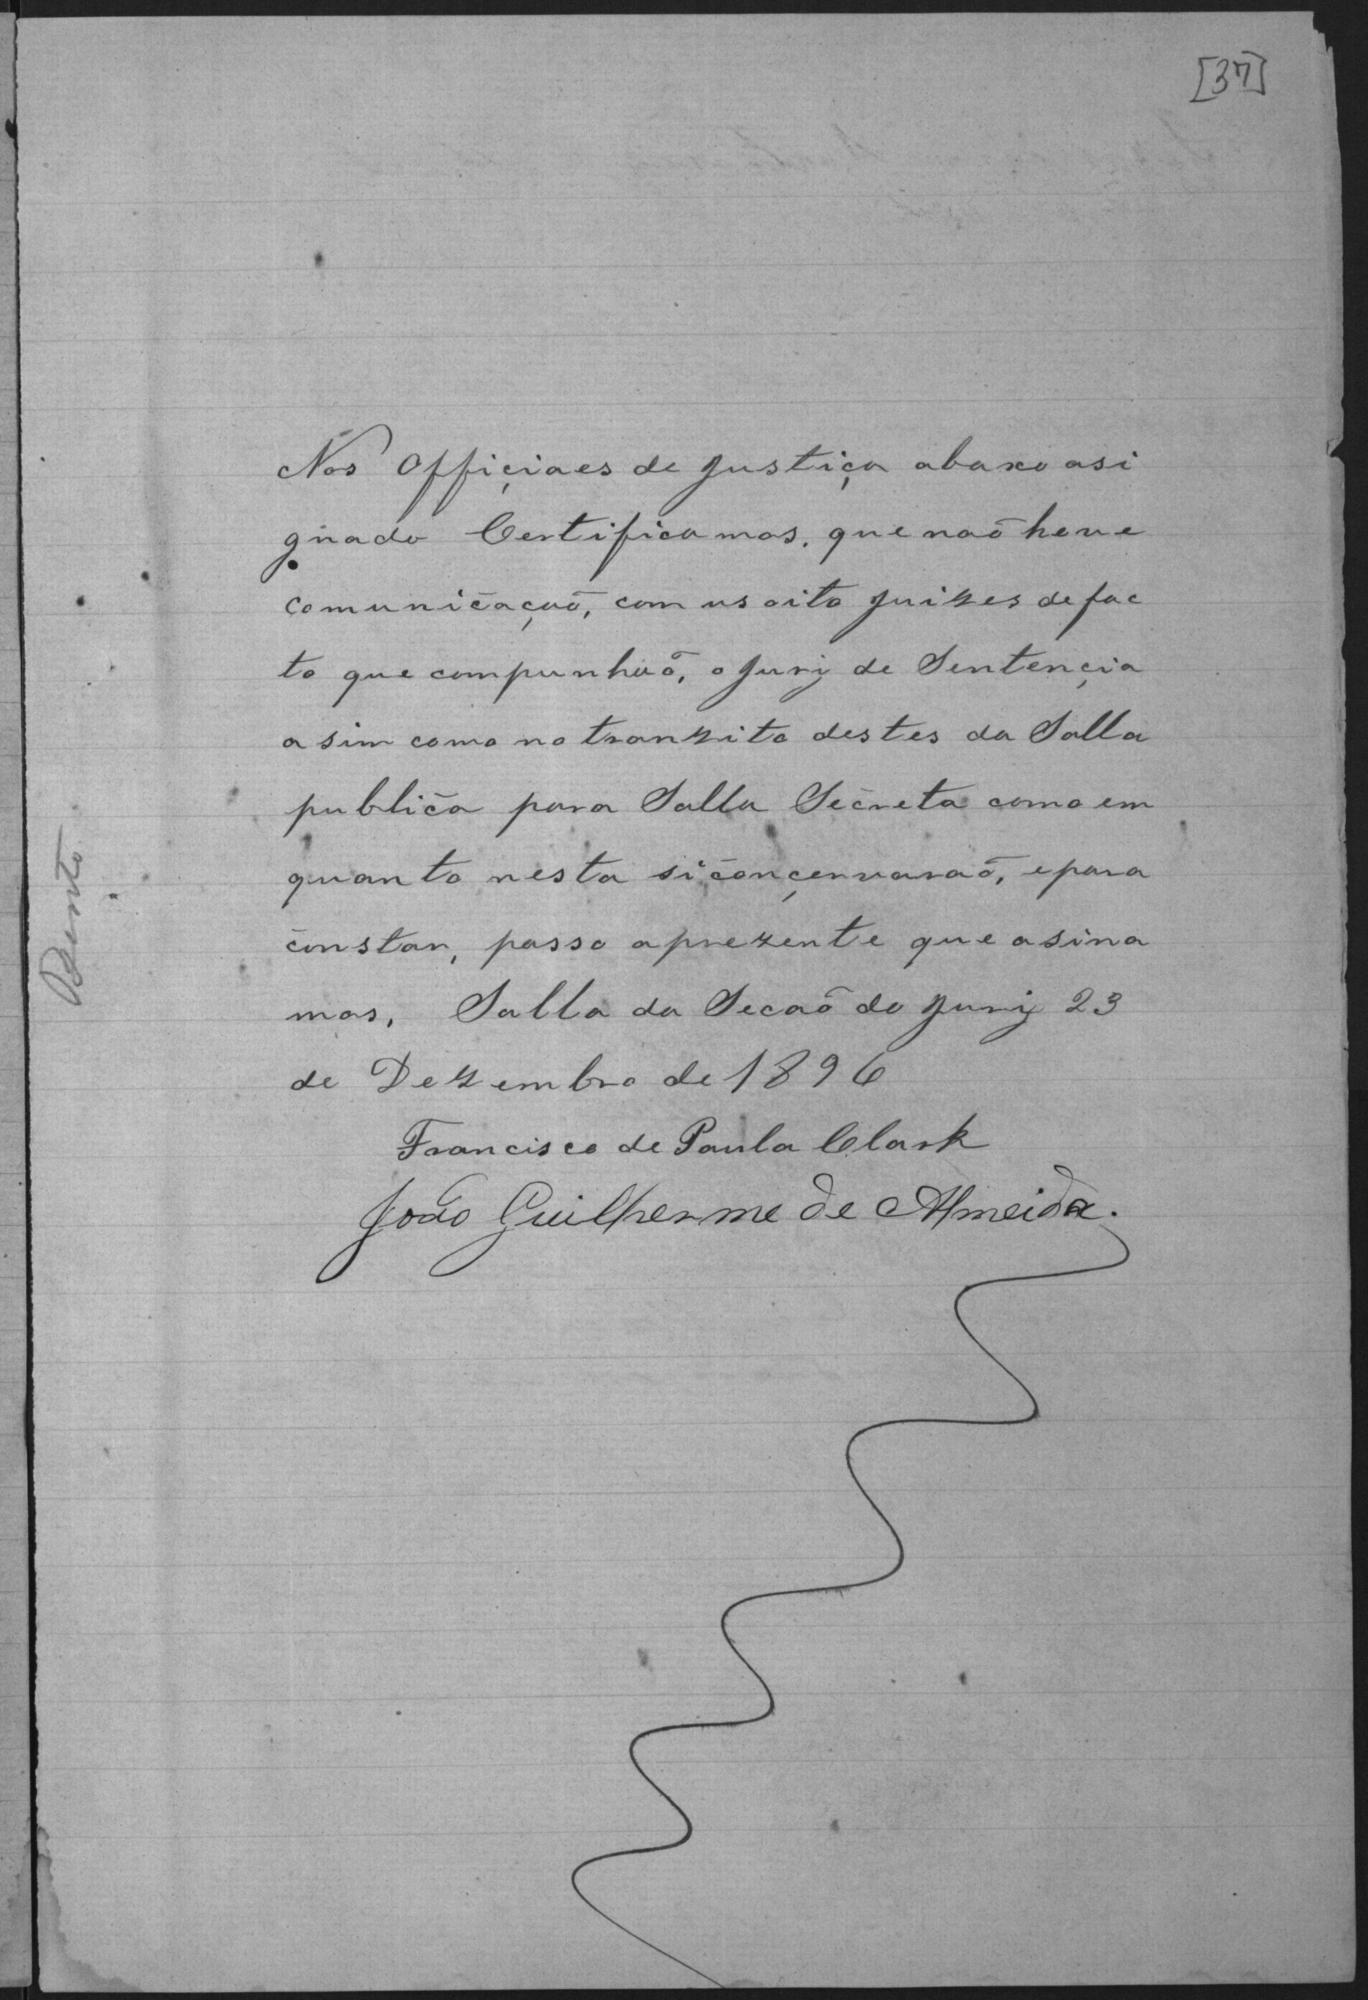 [37]
Nos Officiaes de justiça abaxo asi
gnado Certificamos, que naõ hove
comunicaçaõ, com us oito juizes de fac
to que compunhaõ, o jury de Sentençia
asim como no tranzito destes da Salla
publica para Salla Secreta como em
quanto nesta si conçervaraõ, e para
constar, passo a prezente que asina
mos, Salla da Secaõ do jury 23
de Dezembro de 1896
Francisco de Paula Clark
João Guilherme de Almeida.
Bento